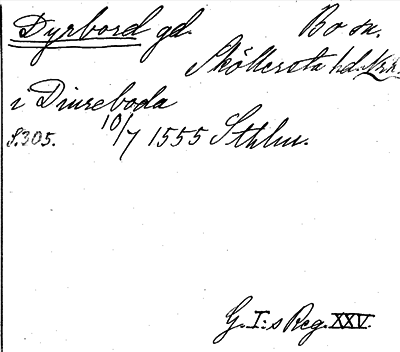 Dyrbord gd. Bo sn.
Sköllersta hd. Nrk.
i Diureboda
S. 305. 10/7 1555 Sthlm.
G. I:s Reg. XXV.